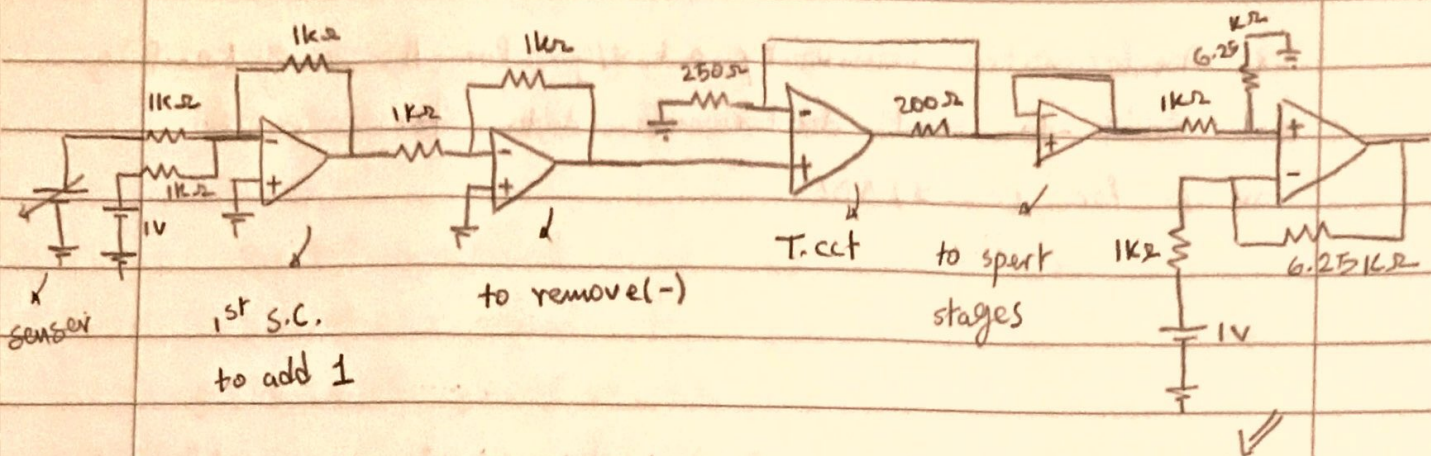 1kΩ
1kΩ
1kΩ
1kΩ
1V
-
+
1kΩ
-
+
250Ω
-
+
200Ω
-
+
1kΩ
6.25
kΩ
+
-
1kΩ
1V
6.25kΩ
senser
1st S.C.
to add 1
to remove(-)
T.cct
to spert
stages